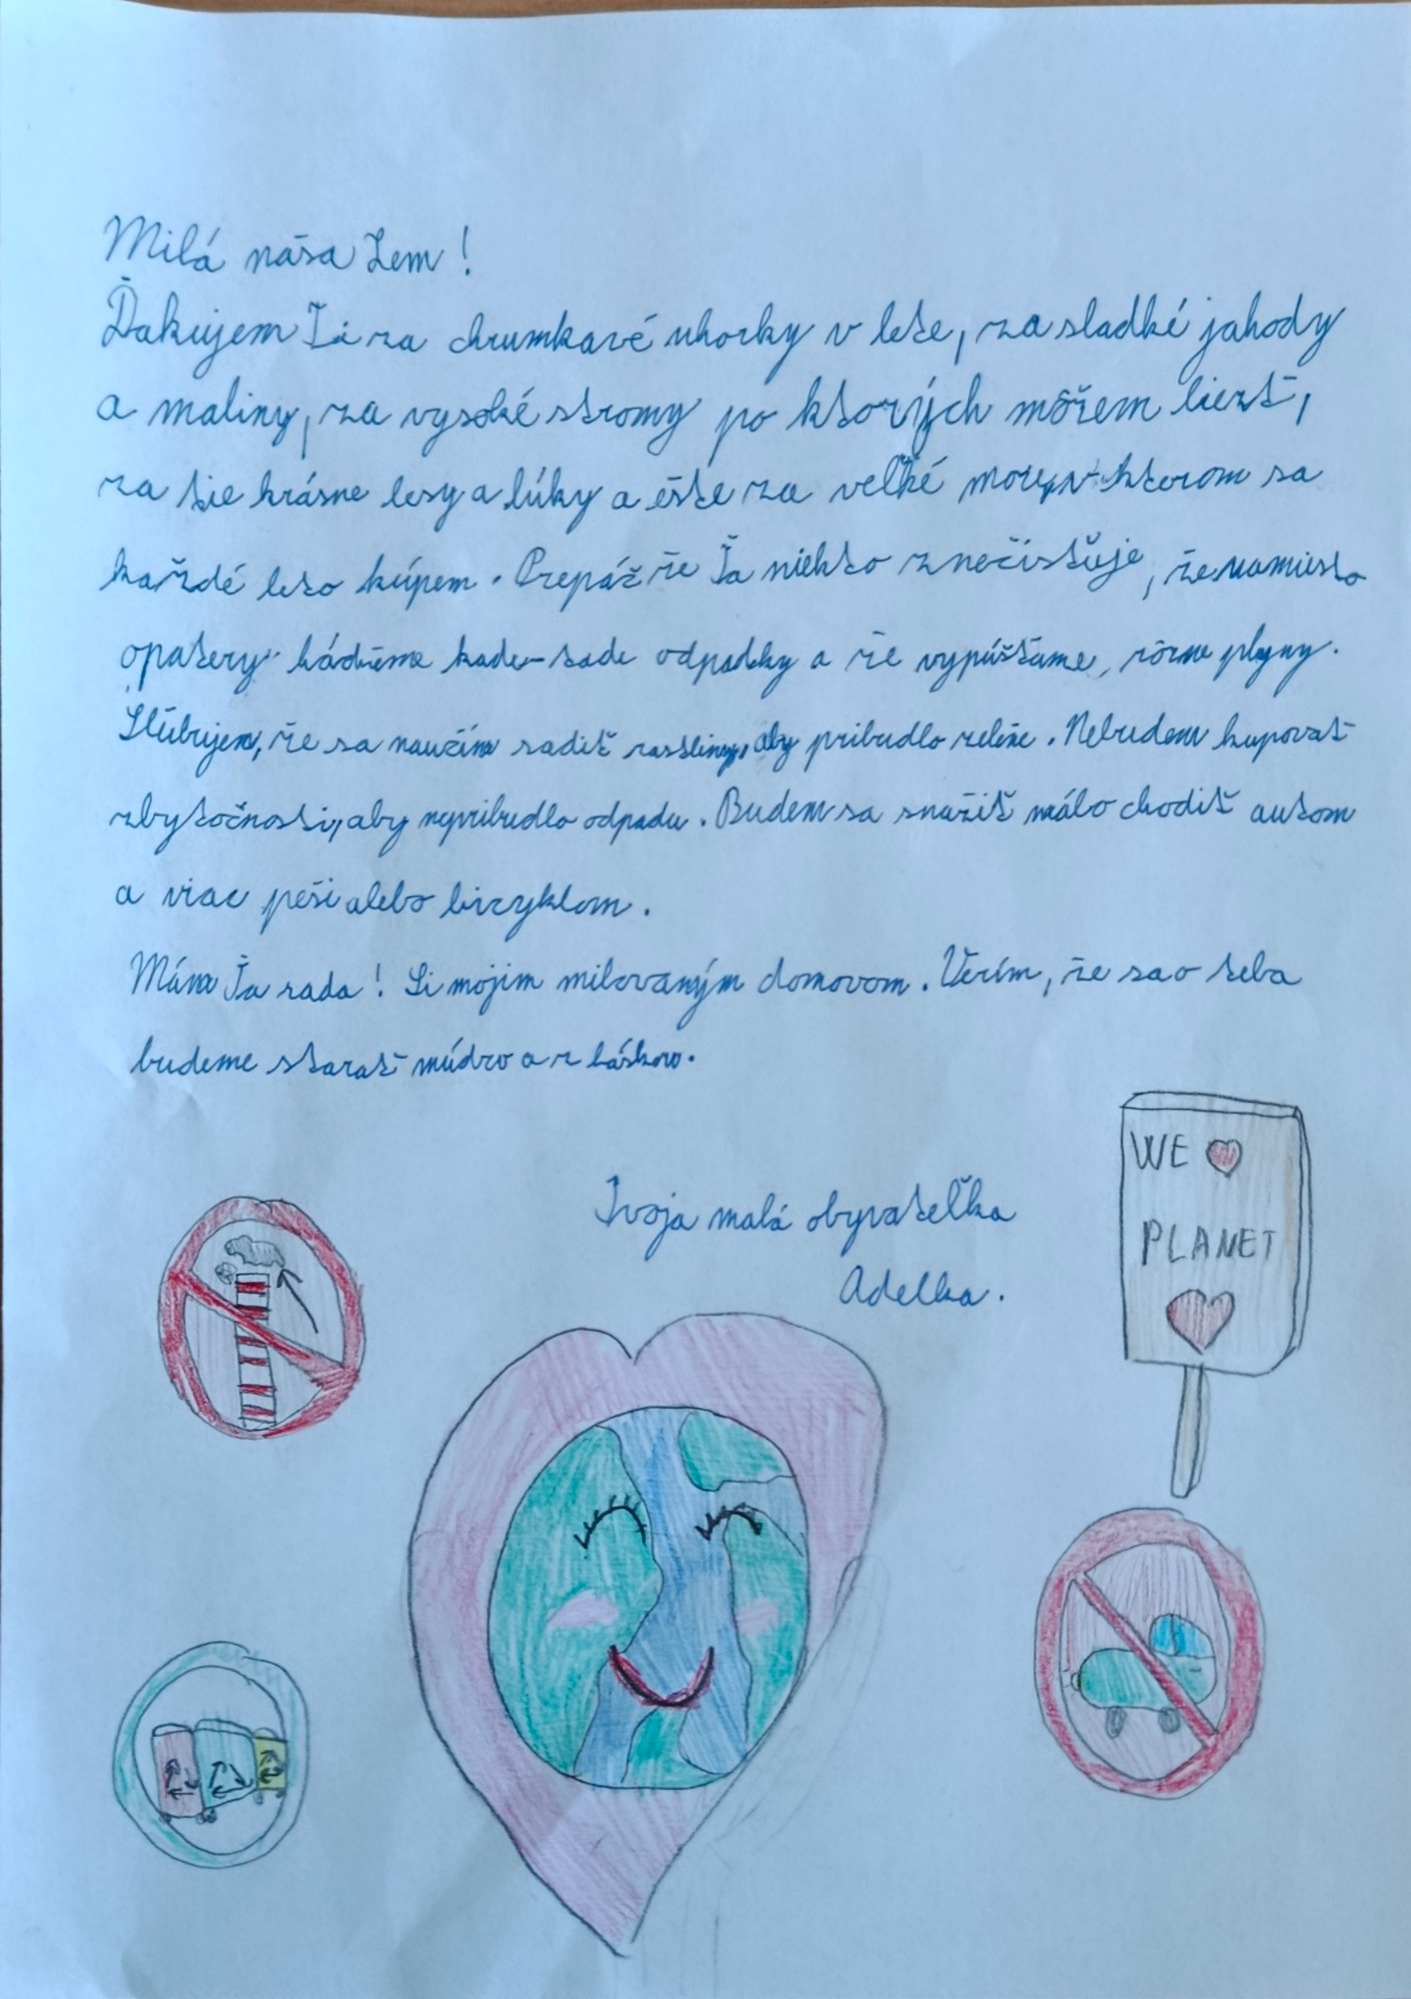 Milá naša Zem!
Ďakujem Ti za chrumkavé uhorky v lete, za sladké jahody
a maliny, za vysoké stromy po ktorých môžem liezť,
za tie krásne lesy a lúky a ešte za veľké more, v ktorom sa
každé leto kúpem. Prepáč že Ťa niekto znečisťuje, že namiesto
opatery hádžeme kade-tade odpadky a že vypúšťame, rôzne plyny.
Sľubujem, že sa naučím sadiť rastliny, aby pribudlo zelene. Nebudem kupovať
zbytočnosti, aby nepribudlo odpadu. Budem sa snažiť málo chodiť autom
a viac peši alebo bicyklom.
Mám Ťa rada! Si mojim milovaným domovom. Verím, že sa o teba
budeme starať múdro a z láskou.
Tvoja malá obyvateľka
Adelka.
WE
PLANET